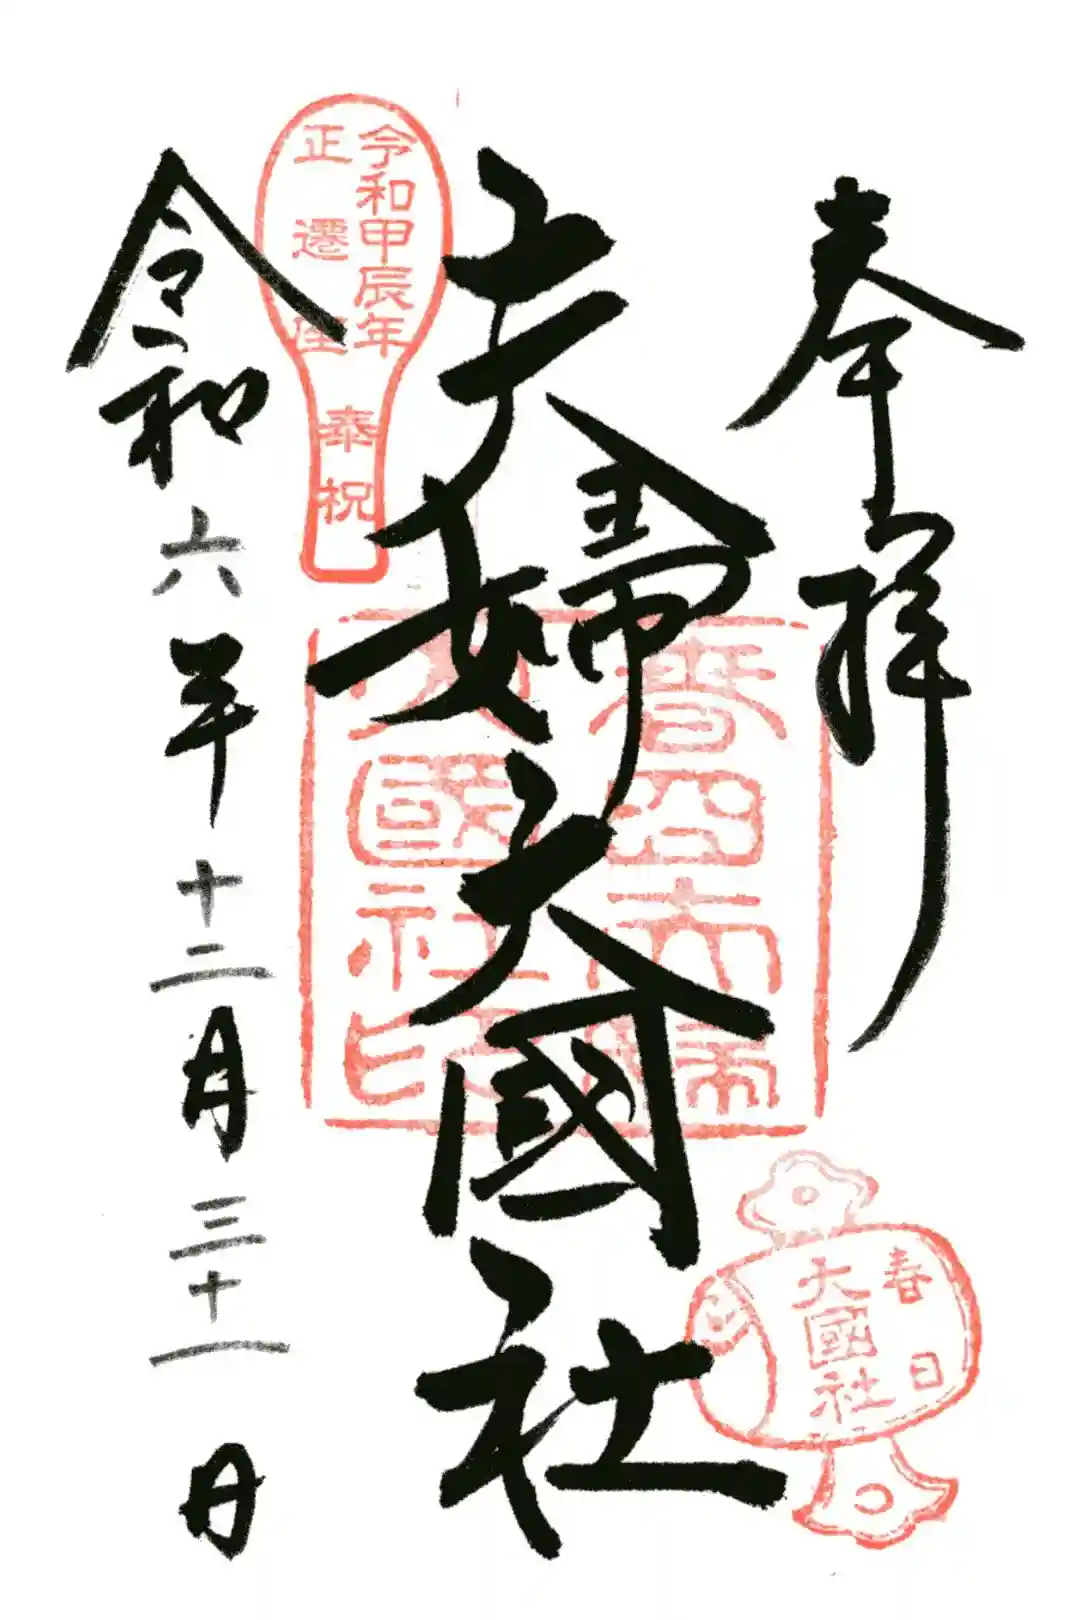 奉拝
夫婦大國社
令和六年十二月三十一日
令和甲辰年
正遷座
奉祝
春日大社
大國社印
春日
大國社